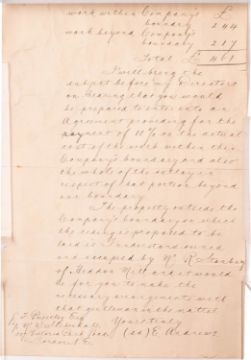 work within Company's
boundary £ 244
work beyond Company's
boundary 217
Total £ 461
I will bring the
subject before my Directors
on hearing that you would
be prepared to enter into an
Agreement providing for the
payment of 10% on the actual
cost of the work within the
Company's boundary and also
the whole of the outlay in
respect of that portion beyond
our boundary.
The property outside the
Company's boundary on which
the siding is proposed to be
laid is I understand owned
and occupied by Mr R
of Heddon Mill and it would
be for you to make the
necessary arrangements with
that gentleman in the matter
Yours truly
J. Pressley Esq (sd) E. Andrews